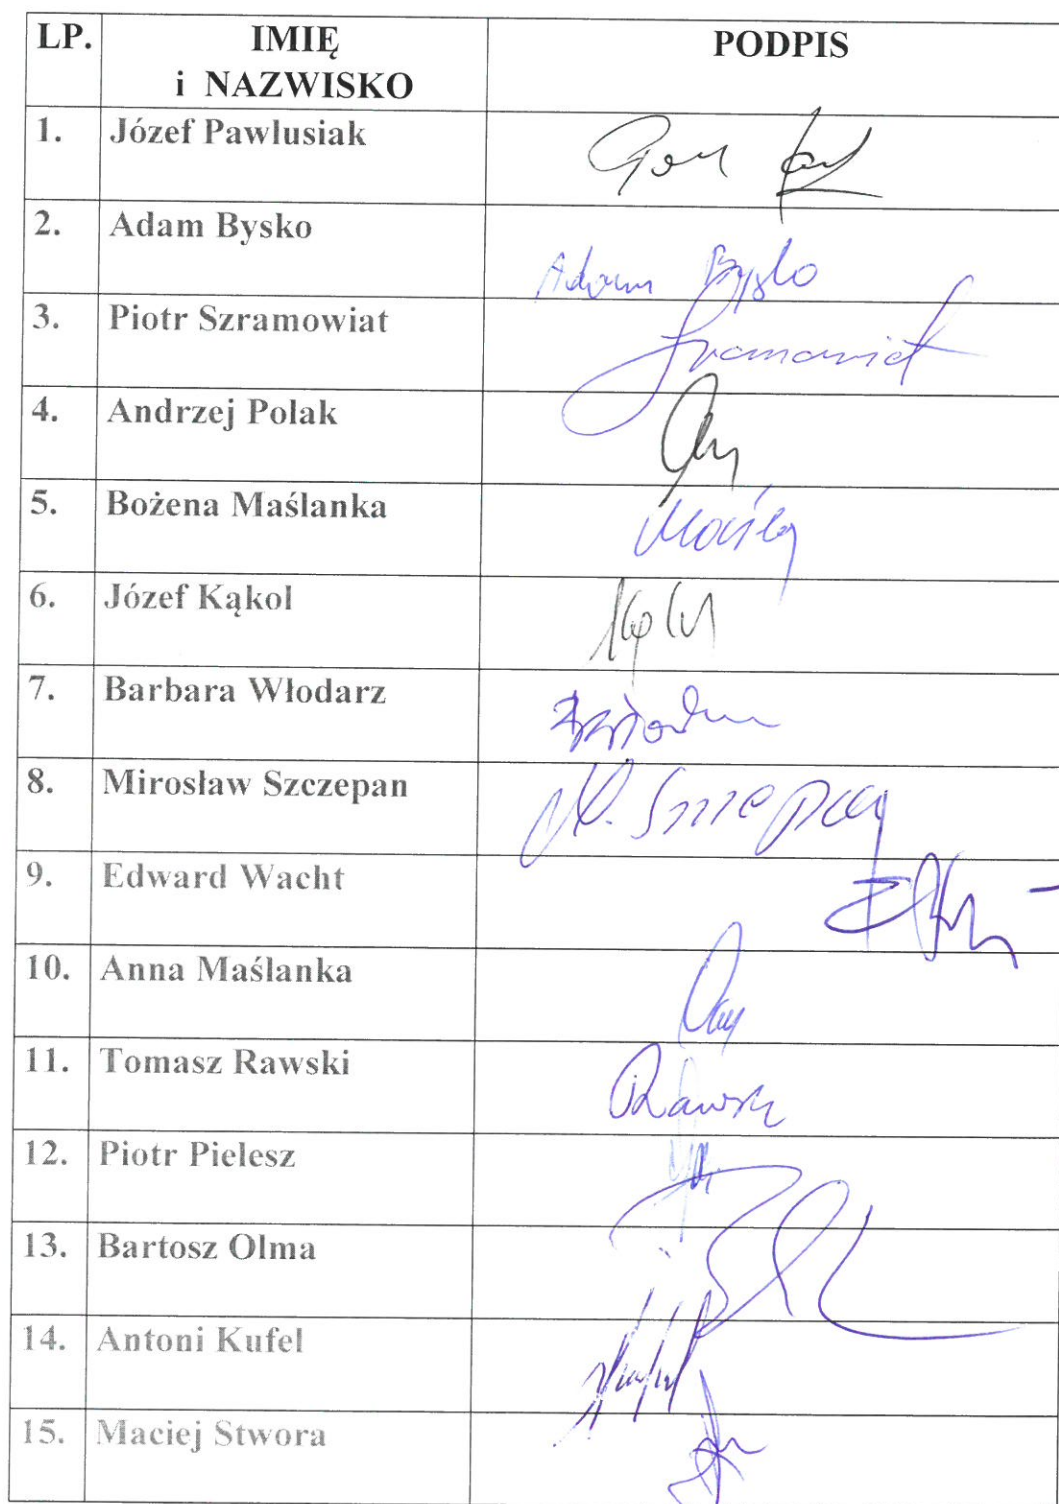 LP. IMIĘ PODPIS
i NAZWISKO
1. Józef Pawlusiak
2. Adam Bysko
Adam Bysko
3. Piotr Szramowiat
Szramowiat
4. Andrzej Polak
5. Bożena Maślanka
6. Józef Kąkol
7. Barbara Włodarz
8. Mirosław Szczepan
M. Szczepan
9. Edward Wacht
10. Anna Maślanka
11. Tomasz Rawski
Rawski
12. Piotr Pielesz
13. Bartosz Olma
14. Antoni Kufel
15. Maciej Stwora